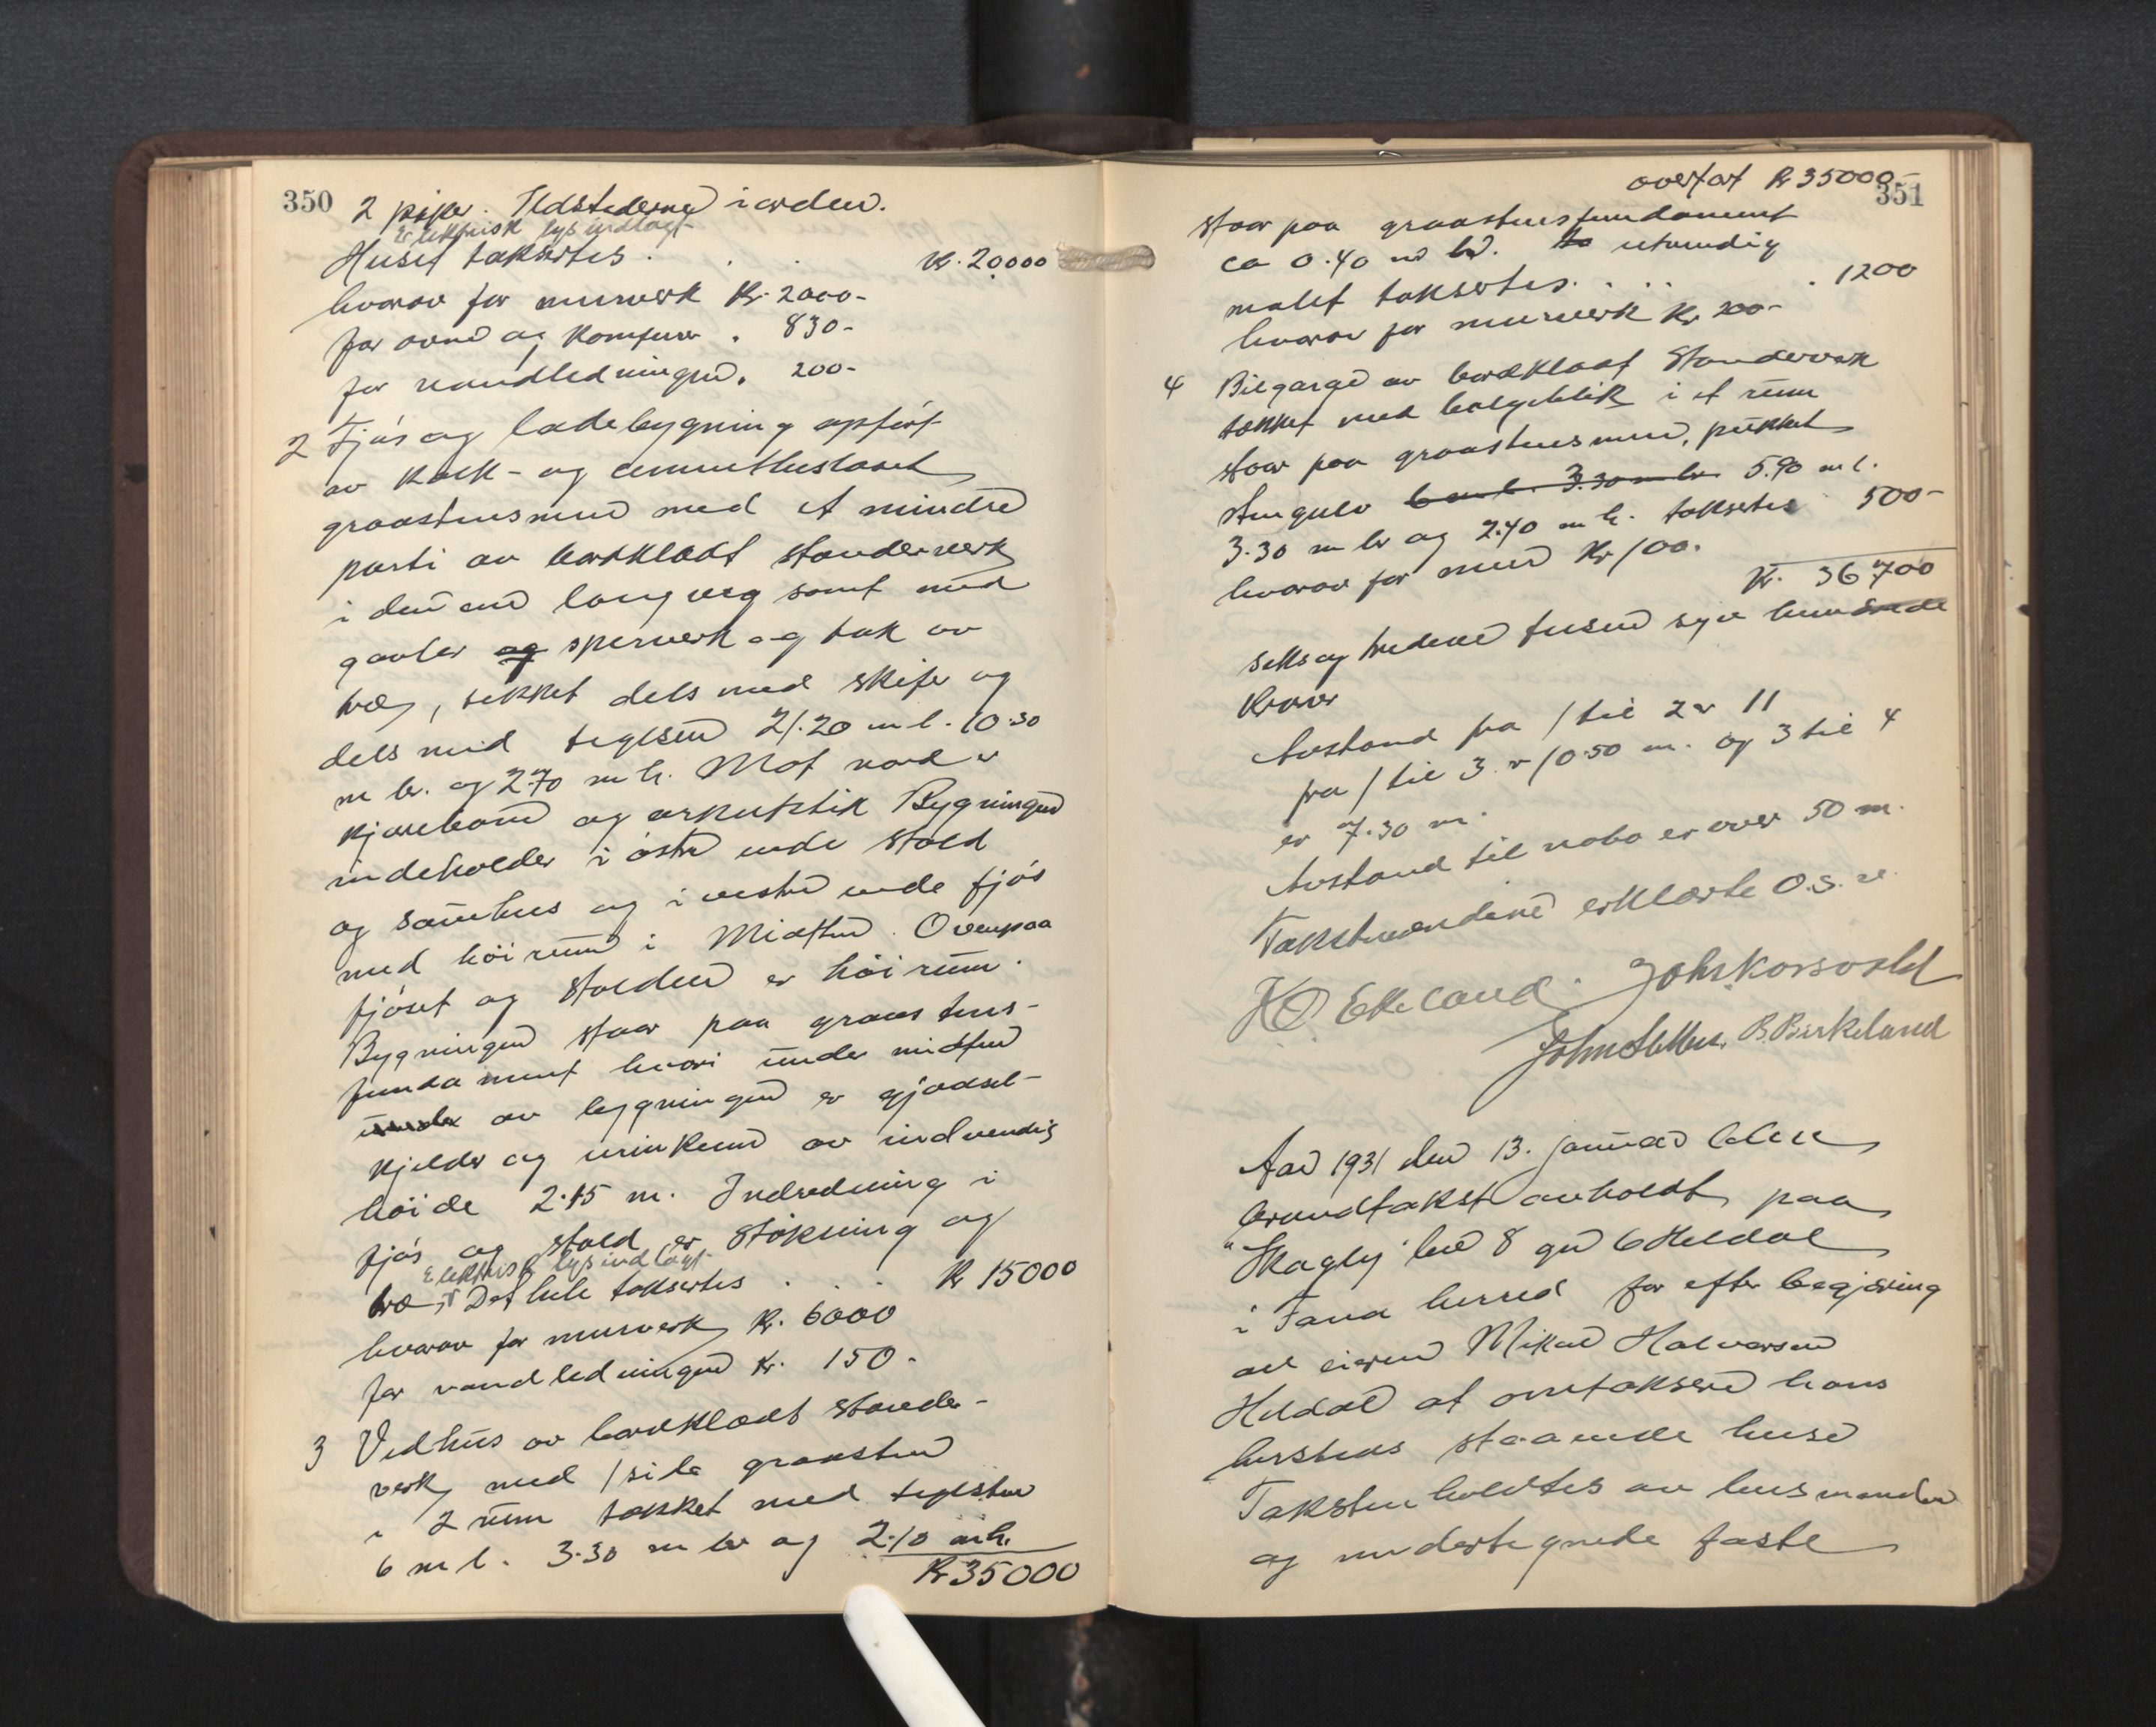 350
2 piper. Ildstederne i orden.
Elektrisk lys indlagt
Huset takseres . . . Kr. 20000
hvorav for murverk Kr. 2000-
for ovne og komfurer . 830-
for vandledningen . 200-
2 Fjøs og ladebygning opført
av kalk- og cementhuslaaet
graastensmur med et mindre
parti av bordklædt stenderverk
i den ene langveg samt med
gavler og sperverk og tak av
træ, tekket dels med skifer og
dels med teglsten 21.20 m l. 10.30
m br. og 2.70 m h. Mot nord er
kjørebane og Bygningen
indeholder i østre ende stald
og sauehus og i vestre ende fjøs
med høirum i Midten. Ovenpaa
fjøset og stalden er høirum.
Bygningen staar paa graastens-
fundament hvori under midten
under av bygningen er gjødsel-
kjelder og urinkum av indvendig
høide 2.15 m. Indredning i
fjøs og stald er støpning og
Elektrisk lys indlagt
træ, Det hele takseres . . . Kr 15000
hvorav for murverk Kr. 6000
for vandledningen Kr. 150.
3 Vedhus av bordklædt stender-
verk med 1 side graasten
i 2 rum tækket med teglsten
6 m l. 3.30 m br og 2.10 m h.
Kr 35000
351
overført Kr 35000-
staar paa graastensfundament
ca 0.40 m h. utvendig
malet takseres . . . . 1200
hvorav for murverk Kr 200-
4 Bilgarge av bordklædt Stenderverk
tækket med bølgeblik i et rum
staar paa graastensmur, pukket
stengulv 6 m l. 3.30 m br 5.90 m l.
3.30 m br og 2.40 m h. takseres 500-
hvorav for mur Kr 100.
Kr. 36700
seks og tredeve tusen syv hundrede
Kroner
Avstand fra 1 til 2 er 11
fra 1 til 3 er 10.50 m. og 3 til 4
er 7.30 m.
Avstand til nabo er over 50 m.
Takstmændene erklærte O.s.v.
Ekeland. Johs Korsvold
B. Birkeland
Aar 1931 den 13. januar blev
brandtakst avholdt paa
"Haugly" bno 8 gno 6 Heldal
i Fana herred for efter begjæring
av eieren Mikal Halvorsen
Heldal at omtaksere hans
hersteds staaende huse
Taksten holdtes av lensmanden
og undertegnede faste